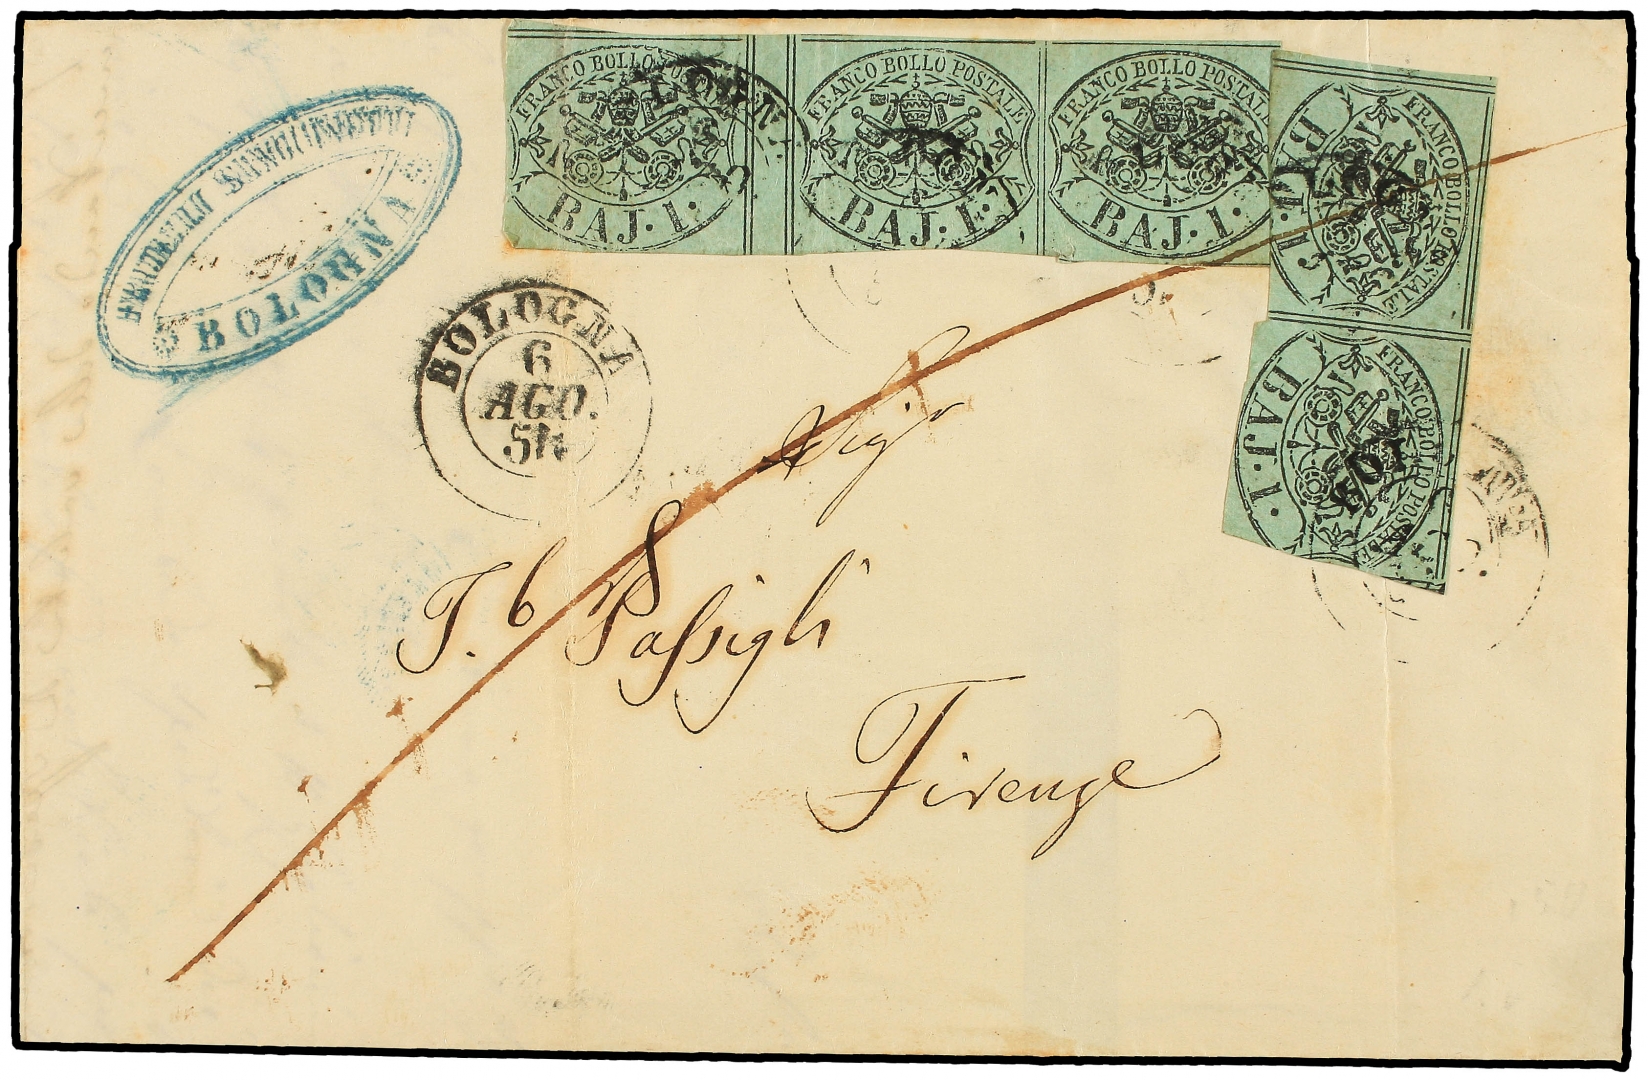 FRANCO BOLLO POSTALE
BAJ. 1.
FRANCO BOLLO POSTALE
BAJ. 1.
FRANCO BOLLO POSTALE
BAJ. 1.
FRANCO BOLLO POSTALE
BAJ. 1.
FRANCO BOLLO POSTALE
BAJ. 1.
BOLOGNA
BOLOGNA
6
AGO.
Sigr
J. b Passigli
Firenze